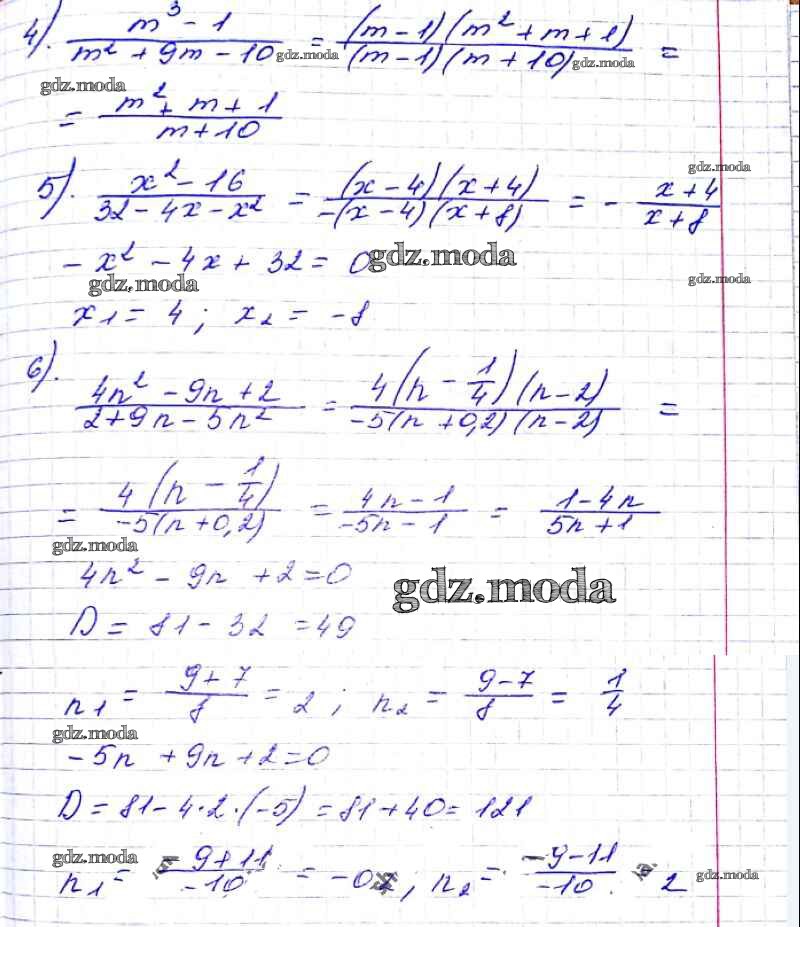 4). (m³ - 1)/(m² + 9m - 10) = ((m - 1)(m² + m + 1))/((m - 1)(m + 10)) =
gdz.moda gdz.moda
gdz.moda
= (m² + m + 1)/(m + 10)
gdz.moda
5). (x² - 16)/(32 - 4x - x²) = ((x - 4)(x + 4))/(-(x - 4)(x + 8)) = - (x + 4)/(x + 8)
- x² - 4x + 32 = 0
gdz.moda
gdz.moda gdz.moda
x₁ = 4; x₂ = -8
6).
(4n² - 9n + 2)/(2 + 9n - 5n²) = (4(n - 1/4)(n - 2))/(-5(n + 0,2)(n - 2)) =
= (4(n - 1/4))/(-5(n + 0,2)) = (4n - 1)/(-5n - 1) = (1 - 4n)/(5n + 1)
gdz.moda
4n² - 9n + 2 = 0
gdz.moda
D = 81 - 32 = 49
n₁ = (9 + 7)/8 = 2; n₂ = (9 - 7)/8 = 1/4
gdz.moda
- 5n + 9n + 2 = 0
D = 81 - 4·2·(-5) = 81 + 40 = 121
gdz.moda gdz.moda
n₁ = (-9 + 11)/-10 = -0,2; n₂ = (-9 - 11)/-10 = 2